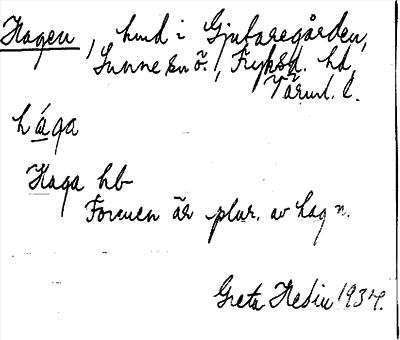 Hagen, hmd i Gjutaregården,
Sunne sn ö., Fryksd. hd,
Värml. l.
hága
Haga hb
Formen är plur. av hag n.
Greta Hedin 1934.